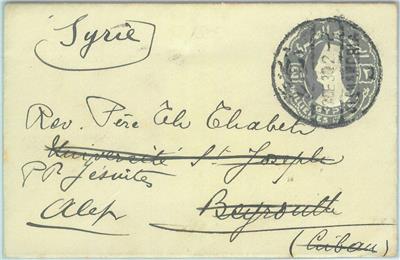 Syrie
Rev. Père Th Chabeth
Université St Joseph
PP Jésuites
Alep
Beyrouth
(Liban)